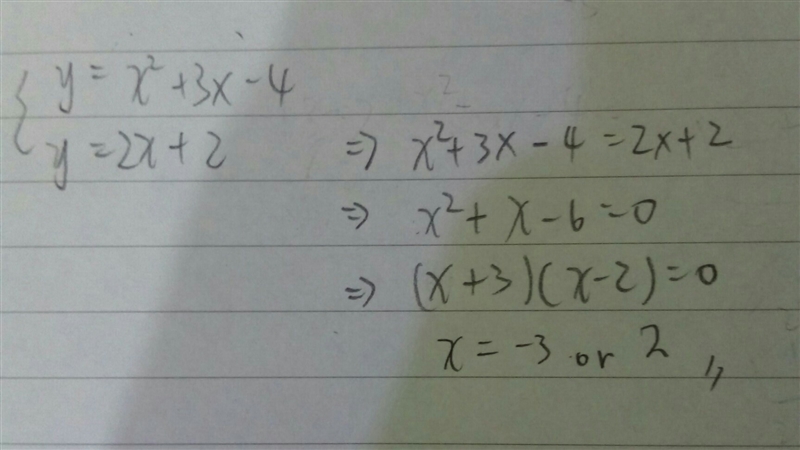 y = x² + 3x - 4
y = 2x + 2 ⇒ x² + 3x - 4 = 2x + 2
⇒ x² + x - 6 = 0
⇒ (x + 3)(x - 2) = 0
x = -3 or 2 〃